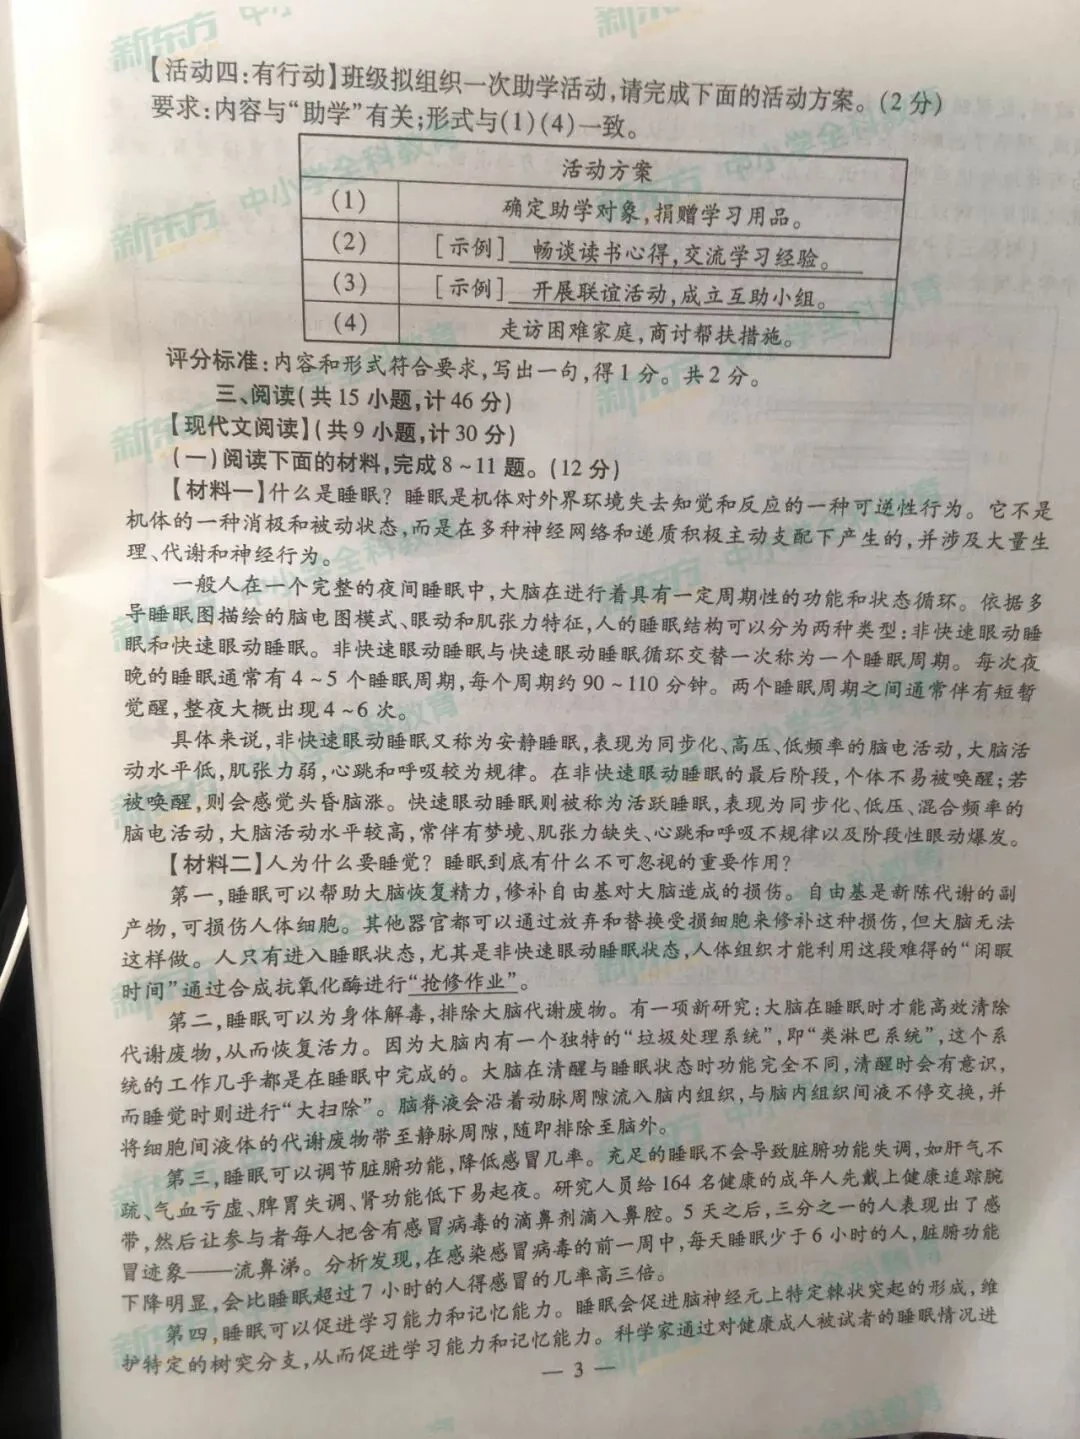 【活动四:有行动】班级拟组织一次助学活动,请完成下面的活动方案。(2分)
要求:内容与“助学”有关;形式与(1)(4)一致。
活动方案
(1) 确定助学对象,捐赠学习用品。
(2) [示例] 畅谈读书心得,交流学习经验。
(3) [示例] 开展联谊活动,成立互助小组。
(4) 走访困难家庭,商讨帮扶措施。
评分标准:内容和形式符合要求,写出一句,得1分。共2分。
三、阅读(共15小题,计46分)
【现代文阅读】(共9小题,计30分)
(一)阅读下面的材料,完成8~11题。(12分)
【材料一】什么是睡眠?睡眠是机体对外界环境失去知觉和反应的一种可逆性行为。它不是
机体的一种消极和被动状态,而是在多种神经网络和递质积极主动支配下产生的,并涉及大量生
理、代谢和神经行为。
一般人在一个完整的夜间睡眠中,大脑在进行着具有一定周期性的功能和状态循环。依据多
导睡眠图描绘的脑电图模式、眼动和肌张力特征,人的睡眠结构可以分为两种类型:非快速眼动睡
眠和快速眼动睡眠。非快速眼动睡眠与快速眼动睡眠循环交替一次称为一个睡眠周期。每次夜
晚的睡眠通常有4~5个睡眠周期,每个周期约90~110分钟。两个睡眠周期之间通常伴有短暂
觉醒,整夜大概出现4~6次。
具体来说,非快速眼动睡眠又称为安静睡眠,表现为同步化、高压、低频率的脑电活动,大脑活
动水平低,肌张力弱,心跳和呼吸较为规律。在非快速眼动睡眠的最后阶段,个体不易被唤醒;若
被唤醒,则会感觉头昏脑涨。快速眼动睡眠则被称为活跃睡眠,表现为同步化、低压、混合频率的
脑电活动,大脑活动水平较高,常伴有梦境、肌张力缺失、心跳和呼吸不规律以及阶段性眼动爆发。
【材料二】人为什么要睡觉?睡眠到底有什么不可忽视的重要作用?
第一,睡眠可以帮助大脑恢复精力,修补自由基对大脑造成的损伤。自由基是新陈代谢的副
产物,可损伤人体细胞。其他器官都可以通过放弃和替换受损细胞来修补这种损伤,但大脑无法
这样做。人只有进入睡眠状态,尤其是非快速眼动睡眠状态,人体组织才能利用这段难得的“闲暇
时间”通过合成抗氧化酶进行“抢修作业”。
第二,睡眠可以为身体解毒,排除大脑代谢废物。有一项新研究:大脑在睡眠时才能高效清除
代谢废物,从而恢复活力。因为大脑内有一个独特的“垃圾处理系统”,即“类淋巴系统”,这个系
统的工作几乎都是在睡眠中完成的。大脑在清醒与睡眠状态时功能完全不同,清醒时会有意识,
而睡觉时则进行“大扫除”。脑脊液会沿着动脉周隙流入脑内组织,与脑内组织间液不停交换,并
将细胞间液体的代谢废物带至静脉周隙,随即排除至脑外。
第三,睡眠可以调节脏腑功能,降低感冒几率。充足的睡眠不会导致脏腑功能失调,如肝气不
疏、气血亏虚、脾胃失调、肾功能低下易起夜。研究人员给164名健康的成年人先戴上健康追踪腕
带,然后让参与者每人把含有感冒病毒的滴鼻剂滴入鼻腔。5天之后,三分之一的人表现出了感
冒迹象——流鼻涕。分析发现,在感染感冒病毒的前一周中,每天睡眠少于6小时的人,脏腑功能
下降明显,会比睡眠超过7小时的人得感冒的几率高三倍。
第四,睡眠可以促进学习能力和记忆能力。睡眠会促进脑神经元上特定棘状突起的形成,维
护特定的树突分支,从而促进学习能力和记忆能力。科学家通过对健康成人被试者的睡眠情况进
— 3 —
新东方 中小学全科教育